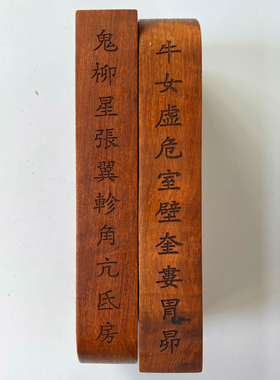 牛女虛危室壁奎婁胃昴
鬼柳星張翼軫角亢氐房